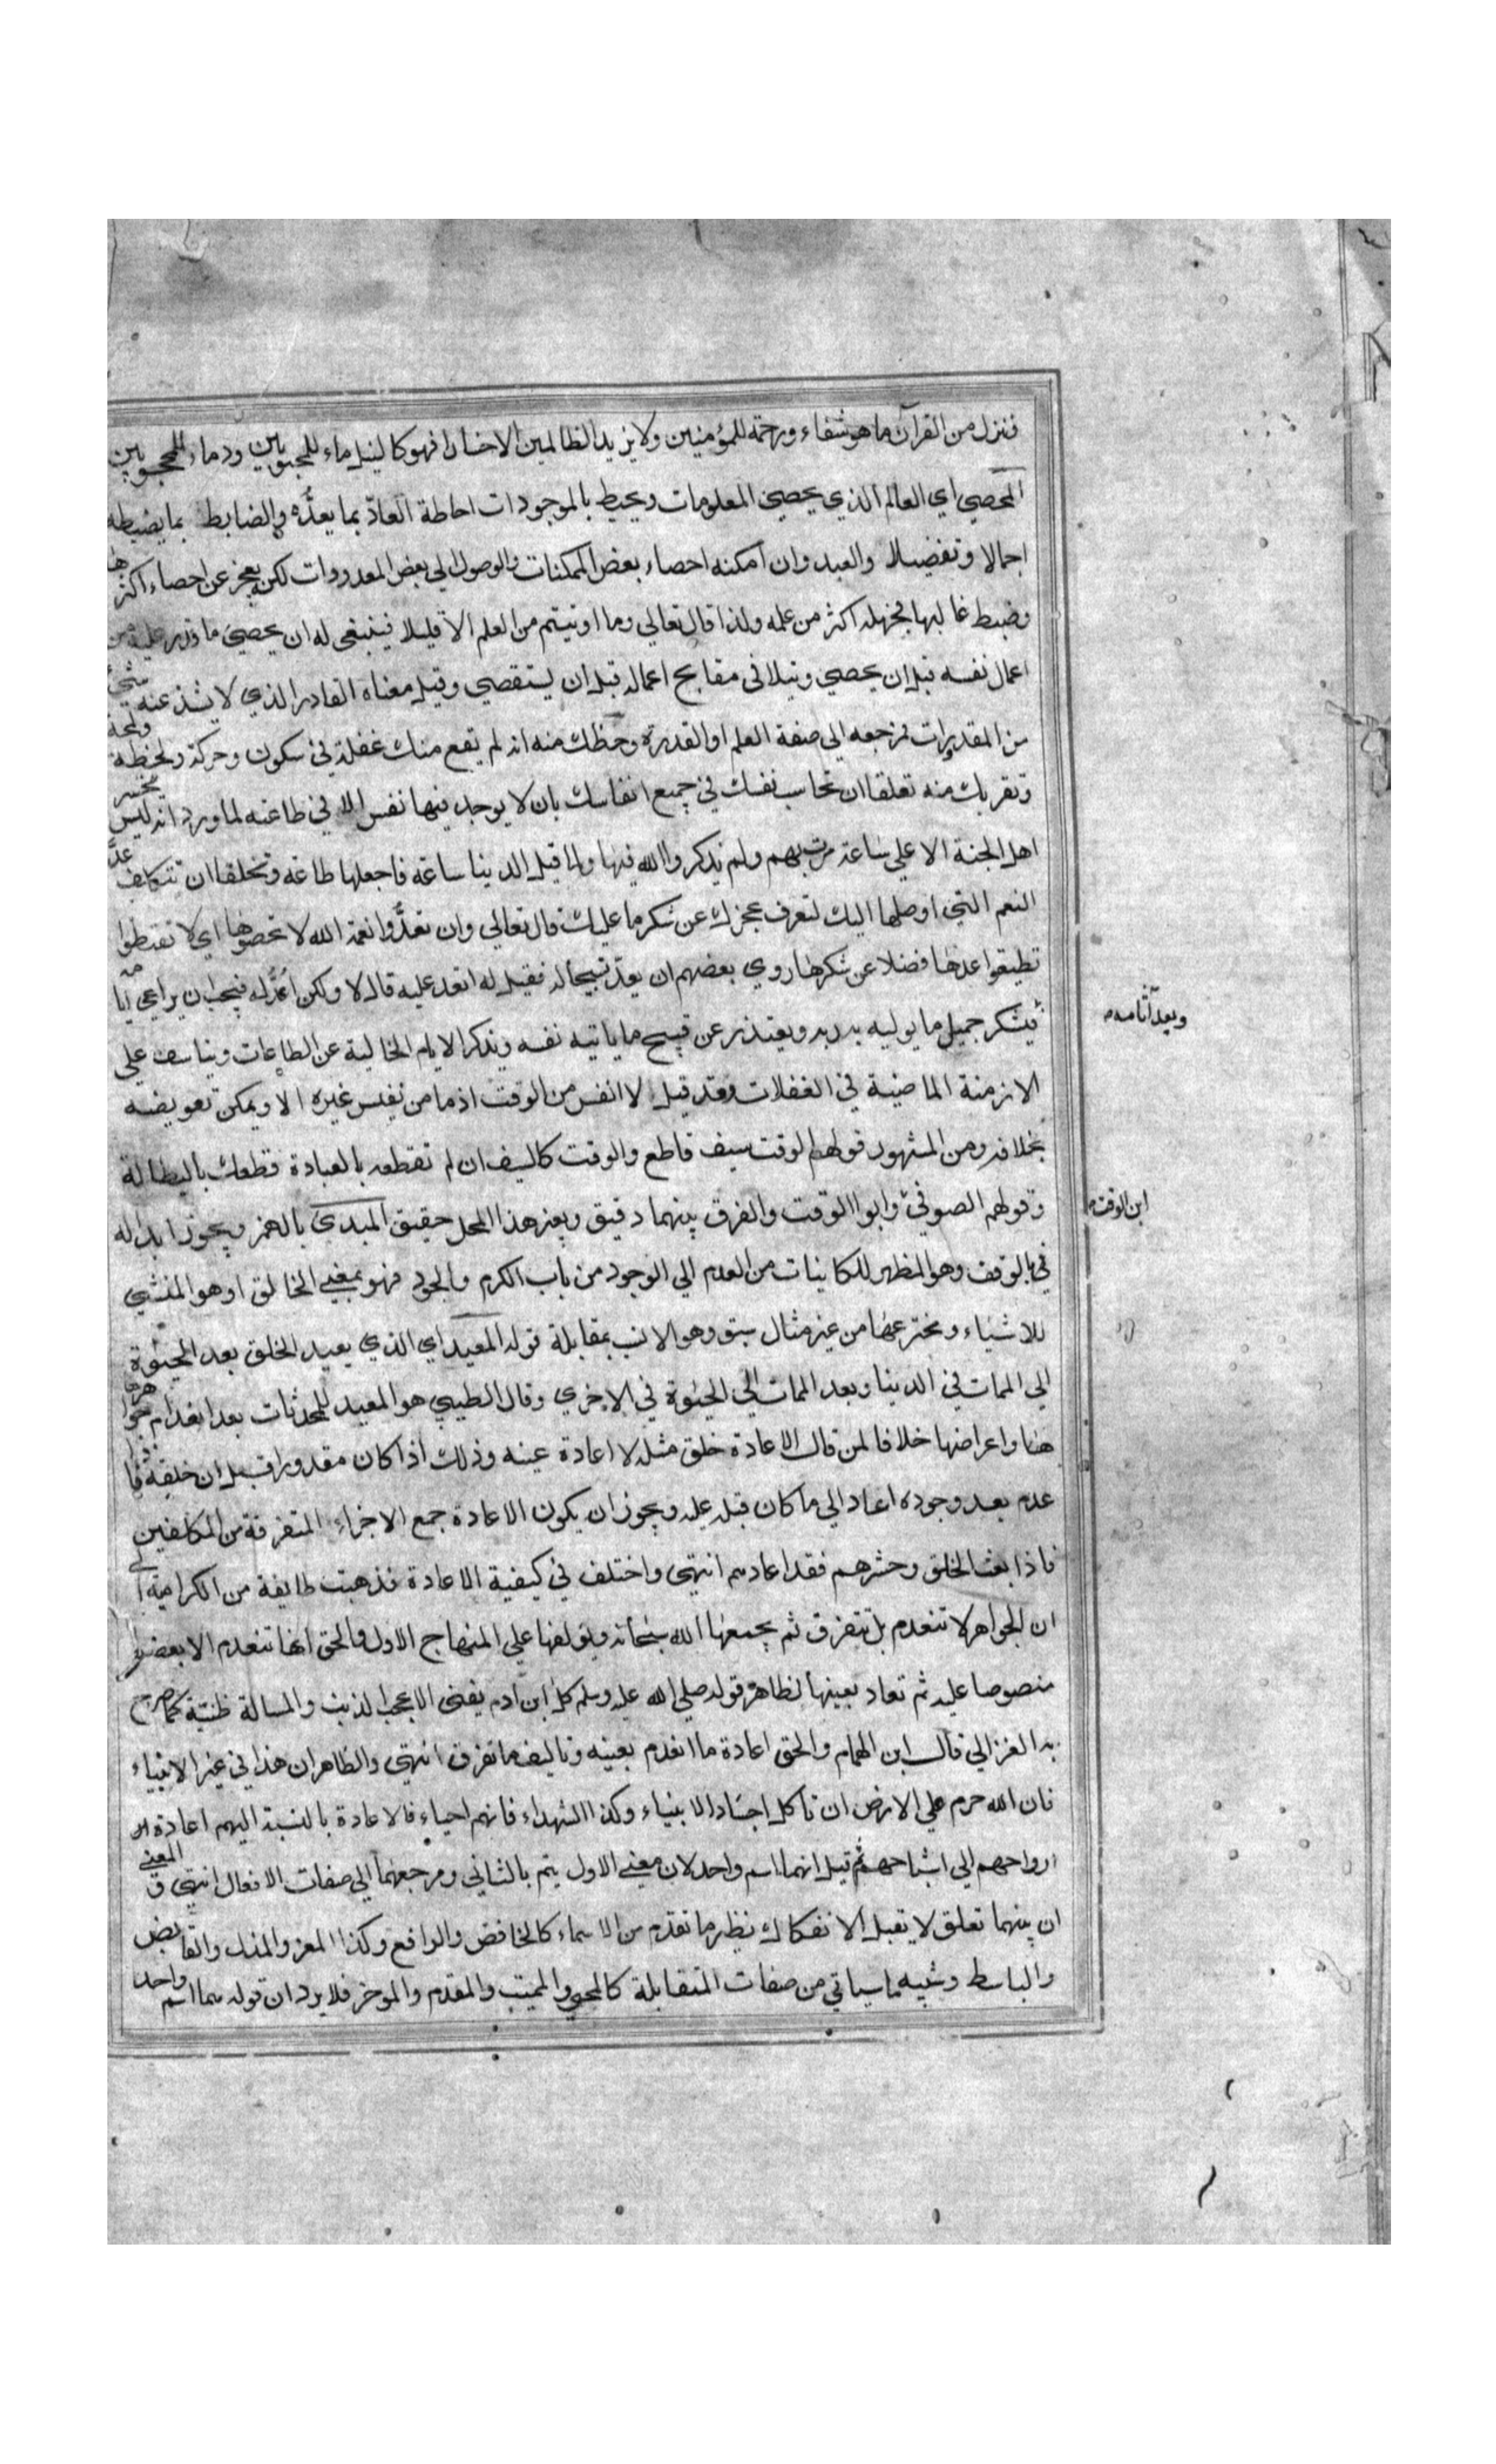 فننزل من القرآن ما هو شفاء ورحمة للمؤمنين ولا يزيد الظالمين الا خسارا فهو كالنيل ماء للمحبوبين ودماء للمحجوبين
المحصي اي العالم الذي يحصي المعلومات ويحيط بالموجودات احاطة العادّ بما يعدُّه والضابط بما يضبطه
اجمالا وتفضيلا والعبد وان امكنه احصاء بعض الممكنات والوصول الي بعض المعدودات لكن يعجز عن احصاء اكثرها
وضبط غالبها فجهله اكثر من علمه ولذا قال تعالي وما اوتيتم من العلم الا قليلا فينبغي له ان يحصي ما قدر عليه من
اعمال نفسه قبل ان يحصي ويتلافى مقابح اعماله قبل ان يستقصي وقيل معناه القادر الذي لا يشذ عنه شيئ
من المقدورات فرجعه الي صفة العلم او القدرة وحظك منه انه لم يقع منك غفلة في سكون وحركة ولحظة ولمحة
وتقربك منه تعلقا ان تحاسب نفسك في جميع انفاسك بان لا يوجد فيها نفس الا في طاعته لما ورد انه ليس يتحسر
اهل الجنة الا علي ساعة مرت بهم ولم يذكروا الله فيها ولما قيل الدينا ساعة فاجعلها طاعة وتخلقا ان تتكلف عدّ
النعم التي اوصلها اليك لتعرف عجزك عن شكر ما عليك قال تعالي وان تعدُّوا نعمة الله لا تحصوها اي لا تضبطوا
تطيقوا عدها فضلا عن شكرها روي بعضهم ان يعدّ تسبيحا له فقيل له اتعد عليه قال لا ولكن اعدُّ له فيجب ان يراعي ايامه
ويعدّ آثامه
فيشكر جميل ما يوليه به ربه ويعتذر عن قبيح ما ياتيه نفسه ويذكر الايام الخالية عن الطاعات ويتاسف علي
الازمنة الماضية في الغفلات وقد قيل لا انفس من الوقت اذ ما من نفيس غيره الا ويمكن تعويضه
بخلافه ومن المشهور قولهم الوقت سيف قاطع والوقت كالسيف ان لم تقطعه بالعبادة قطعك بالبطالة
وقولهم الصوفي وابوا الوقت والفرق بينهما دقيق وبغير هذا المحل حقيق المبدئ بالهمز ويجوز ابداله
ابن الوقت
في الوقف وهو المظهر للكاينات من العدم الي الوجود من باب الكرم والجود فهو بمعنى الخالق او هو المنشي
للاشياء ومخترعها من غير مثال سبق وهو الانسب بمقابلة قوله المعيد اي الذي يعيد الخلق بعد الحيوة
الي الممات في الدينا وبعد الممات الي الحيوة في الاخري وقال الطيبي هو المعيد للمحدثات بعد انعدام جواهرها
هنا واعراضها خلافا لمن قال الاعادة خلق مثله لا اعادة عينه وذلك اذا كان مقدورا قبل ان خلقه فاذا
عدم بعد وجوده اعاد الي ما كان قبله عليه ويجوز ان يكون الاعادة جمع الاجزاء المتفرقة من المكلفين
فاذا بعث الخلق وحشرهم فقد اعادهم انتهى واختلف في كيفية الاعادة فذهبت طايفة من الكرامية الي
ان الجواهر لا تنعدم بل تتفرق ثم يجمعها الله سبحانه ويؤلفها علي المنهاج الاول والحق انها تنعدم الا بعضها
منصوصا عليه ثم تعاد بعينها لظاهر قوله صلي الله عليه وسلم كل ابن آدم يفنى الا عجب الذنب والمسالة ظنية كما صرح
به الغزالي قال ابن الهمام والحق اعادة ما انعدم بعينه وتاليف ما تفرق انتهى والظاهر ان هذا في غير الانبياء
فان الله حرم علي الارض ان تاكل اجساد الانبياء وكذا الشهداء فانهم احياء فالاعادة بالنسبة اليهم اعادة
ارواحهم الي اشباحهم ثم قيل انهما اسم واحد لان معنى الاول يتم بالثاني ومرجعهما الي صفات الافعال انتهى والمعنى
ان بينهما تعلق لا يقبل الانفكاك نظير ما تقدم من الاسماء كالخافض والرافع وكذا المعز والمذل والقابض
والباسط وشبيه ما سياتي من صفات المتقابلة كالمحيي والمميت والمقدم والموخر فلا يرد ان قوله هما اسم واحد